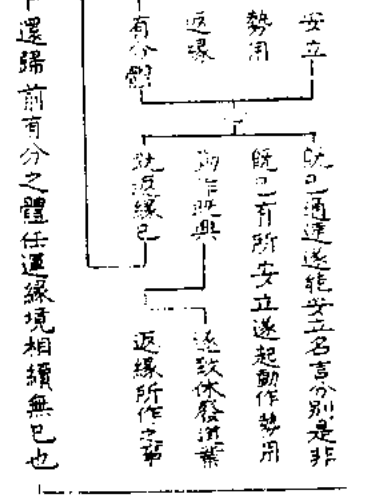 安立
勢用
返緣
有分體
既已通達遂能安立名言分別是非
既已有所安立遂起動作勢用
動作既興
遂致休發道業
既返緣已
返緣所作之事
還歸前有分之體任運緣境相續無已也